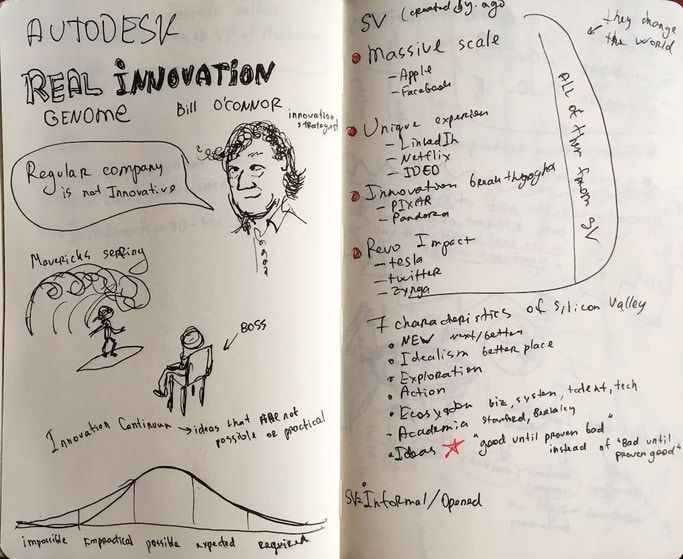 AUTODESK
REAL INNOVATION
GENOME
Bill O'CONNOR
innovation
strategist
Regular company
is not Innovative
Mavericks serfing
BOSS
Innovation Continuum → ideas that ARE not
possible or practical
impossible Empractical possible expected Required
SV (created by. ago
they change
the world
Massive scale
- Apple
- Facebook
Unique experien
- LinkedIn
- Netflix
- IDEO
Innovation
- PIXAR
- Pandora
Revo Impact
- tesla
- twitter
- Zynga
ALL of them from SV
7 characteristics of Silicon Valley
• NEW next/better
• Idealism better place
• Exploration
• Action
• biz, system, talent, tech
- Academia Berkeley
• Ideas ☆ "good until proven bad"
instead of "Bad until
proven good"
SV= Informal/Opened